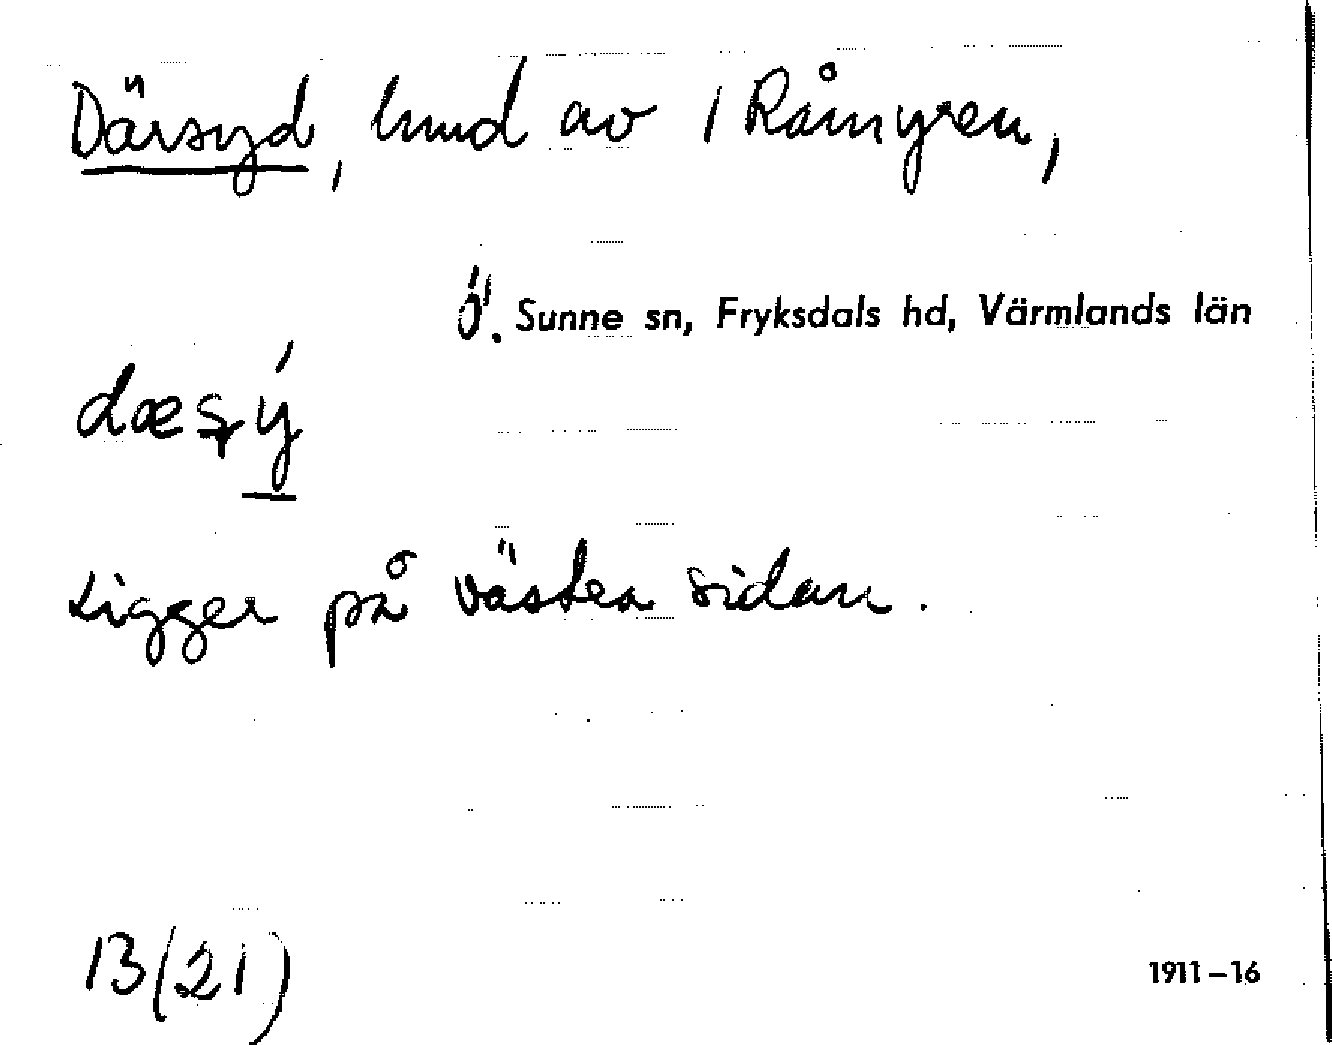 Därsyd, hmd av 1 Råmyren,
Ö. Sunne sn, Fryksdals hd, Värmlands län
Ligger på västra sidan.
13(21)
1911–16